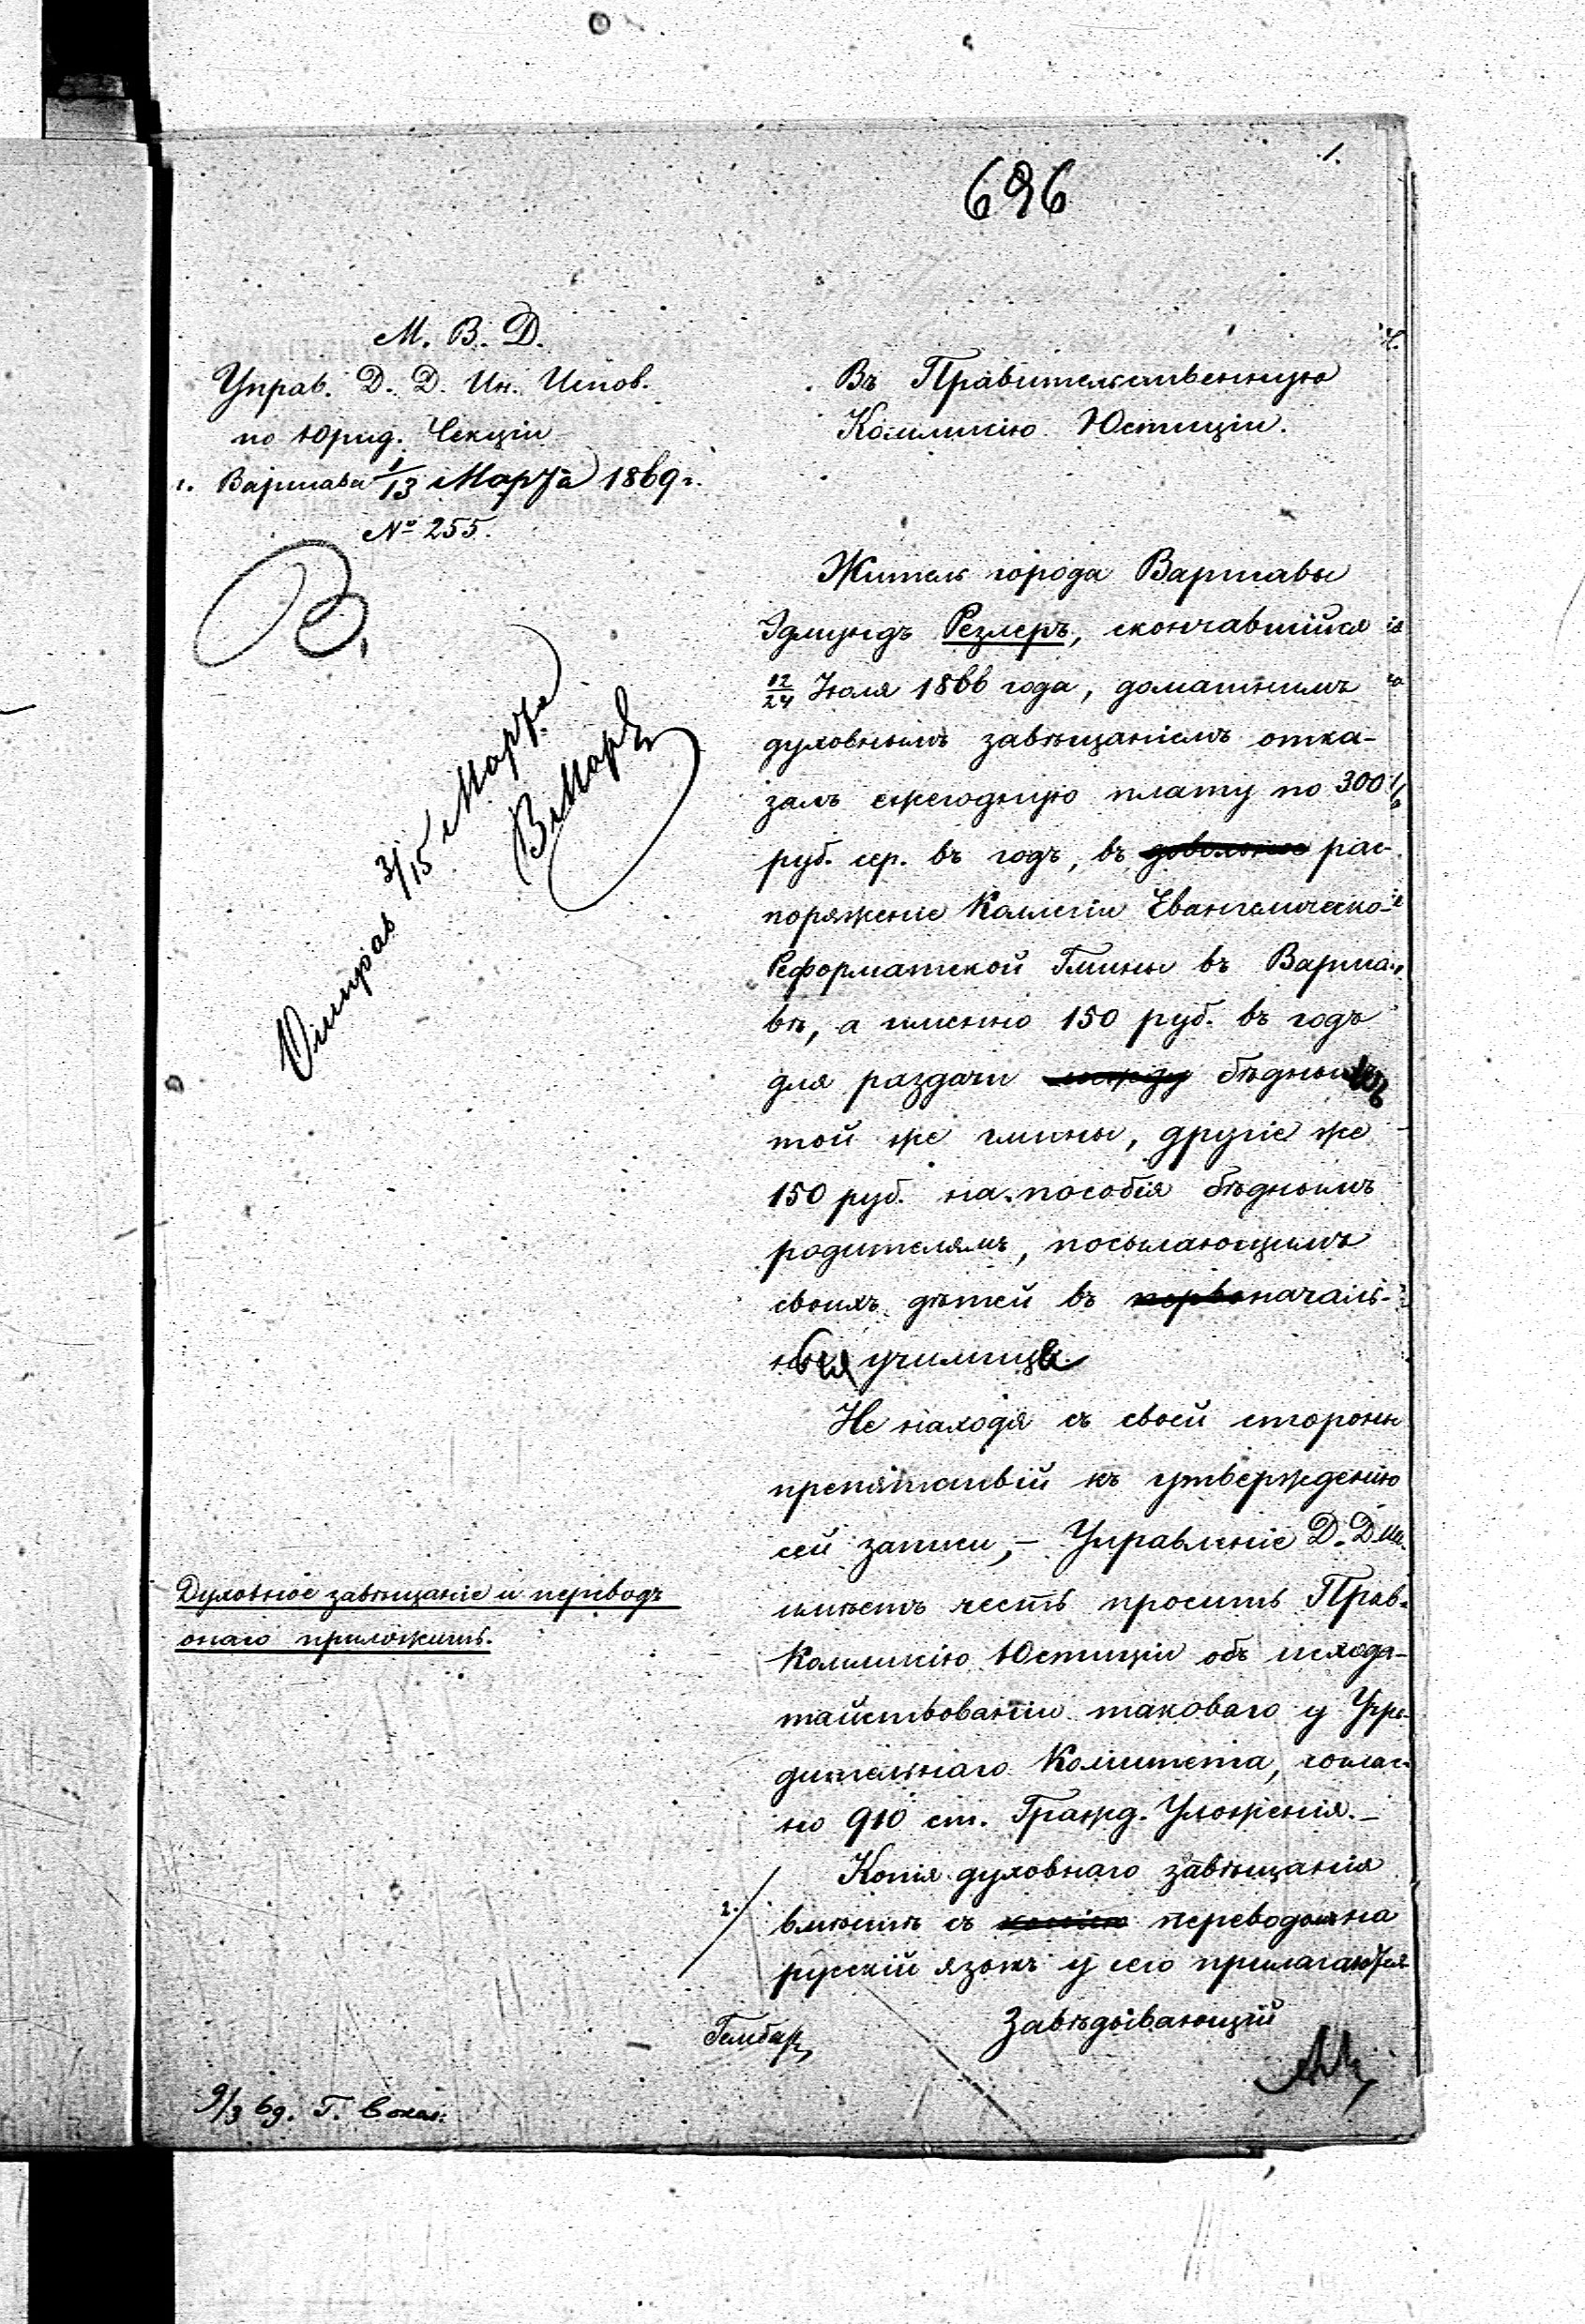 1.
696
М. В. Д.
Управ. Д. Д. Ин. Испов.
по Юрид. Секціи
г. Варшава 1/13 Марта 1869 г.
№ 255.
Отправ 3/15 Марта
Въ Правительственную
Коммисію Юстиціи.
Житель города Варшавы
Эдмундъ Резлеръ, скончавшійся
12/24 Іюля 1866 года, домашнимъ
духовнымъ завѣщаніемъ отка-
залъ ежегодную плату по 300
руб. сер. въ годъ, въ рас-
поряженіе Коллегіи Евангелическо-
Реформатской Гмины въ Варша-
вѣ, а именно 150 руб. въ годъ
для раздачи между бѣднымъ
той же гмины, другіе же
150 руб. на пособія бѣднымъ
родителямъ, посылающимъ
своихъ дѣтей въ первоначаль-
ныя училища
Не находя съ своей стороны
препятствій къ утвержденію
сей записи, – Управленіе Д. Д. Ин.
имѣетъ честь просить Прав.
Коммисію Юстиціи объ исхода-
тайствованіи таковаго у Учре-
дительнаго Комитета, соглас-
но 910 ст. Гражд. Уложенія. –
Копія духовнаго завѣщанія
вмѣстѣ съ копіею переводомъ на
русскій языкъ у сего прилагаются
Завѣдывающій
Духовное завѣщаніе и переводъ
онаго приложить.
9/3 69. Г.